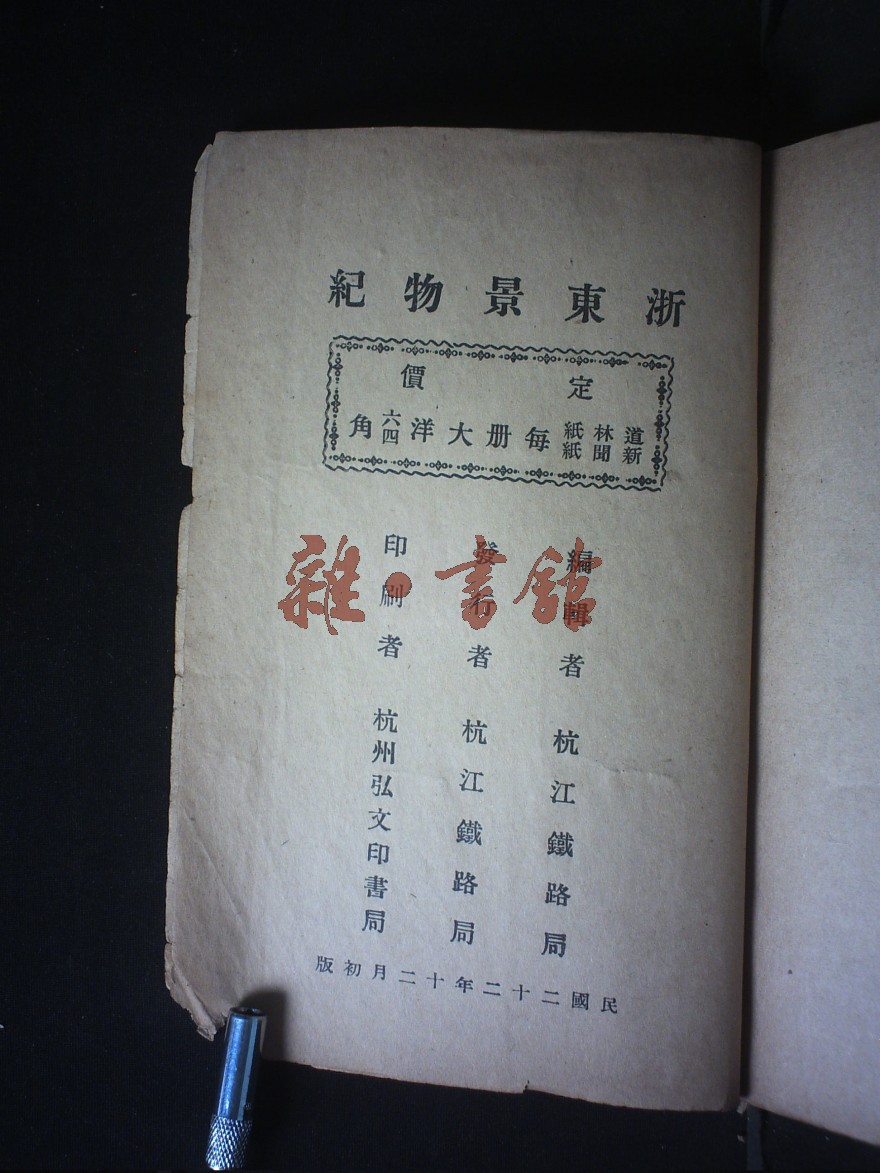 浙東景物紀
定價
道林紙
新聞紙
每册大洋六四角
編輯者 杭江鐵路局
發行者 杭江鐵路局
印刷者 杭州弘文印書局
民國二十二年十二月初版
雜·書館